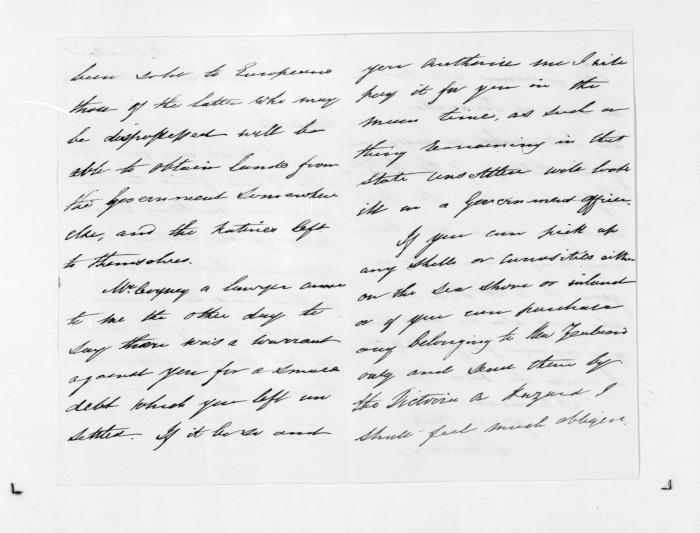 been sold to Europeans
those of the latter who may
be dispossessed will be
able to obtain lands from
the Government somewhere
else, and the natives left
to themselves.
Mr. a lawyer came
to me the other day to
say there was a warrant
against you for a small
debt which you left un
settled. If it be so and
you authorize me I will
pay it for you in the
mean time, as such a
thing remaining in that
state unsettled will look
ill in a Government officer.
If you can pick up
any shells or curiosities either
on the sea shore or inland
or if you can purchase
any belonging to New Zealand
only and send them by
the Victoria or Hazard I
shall feel much obliged.